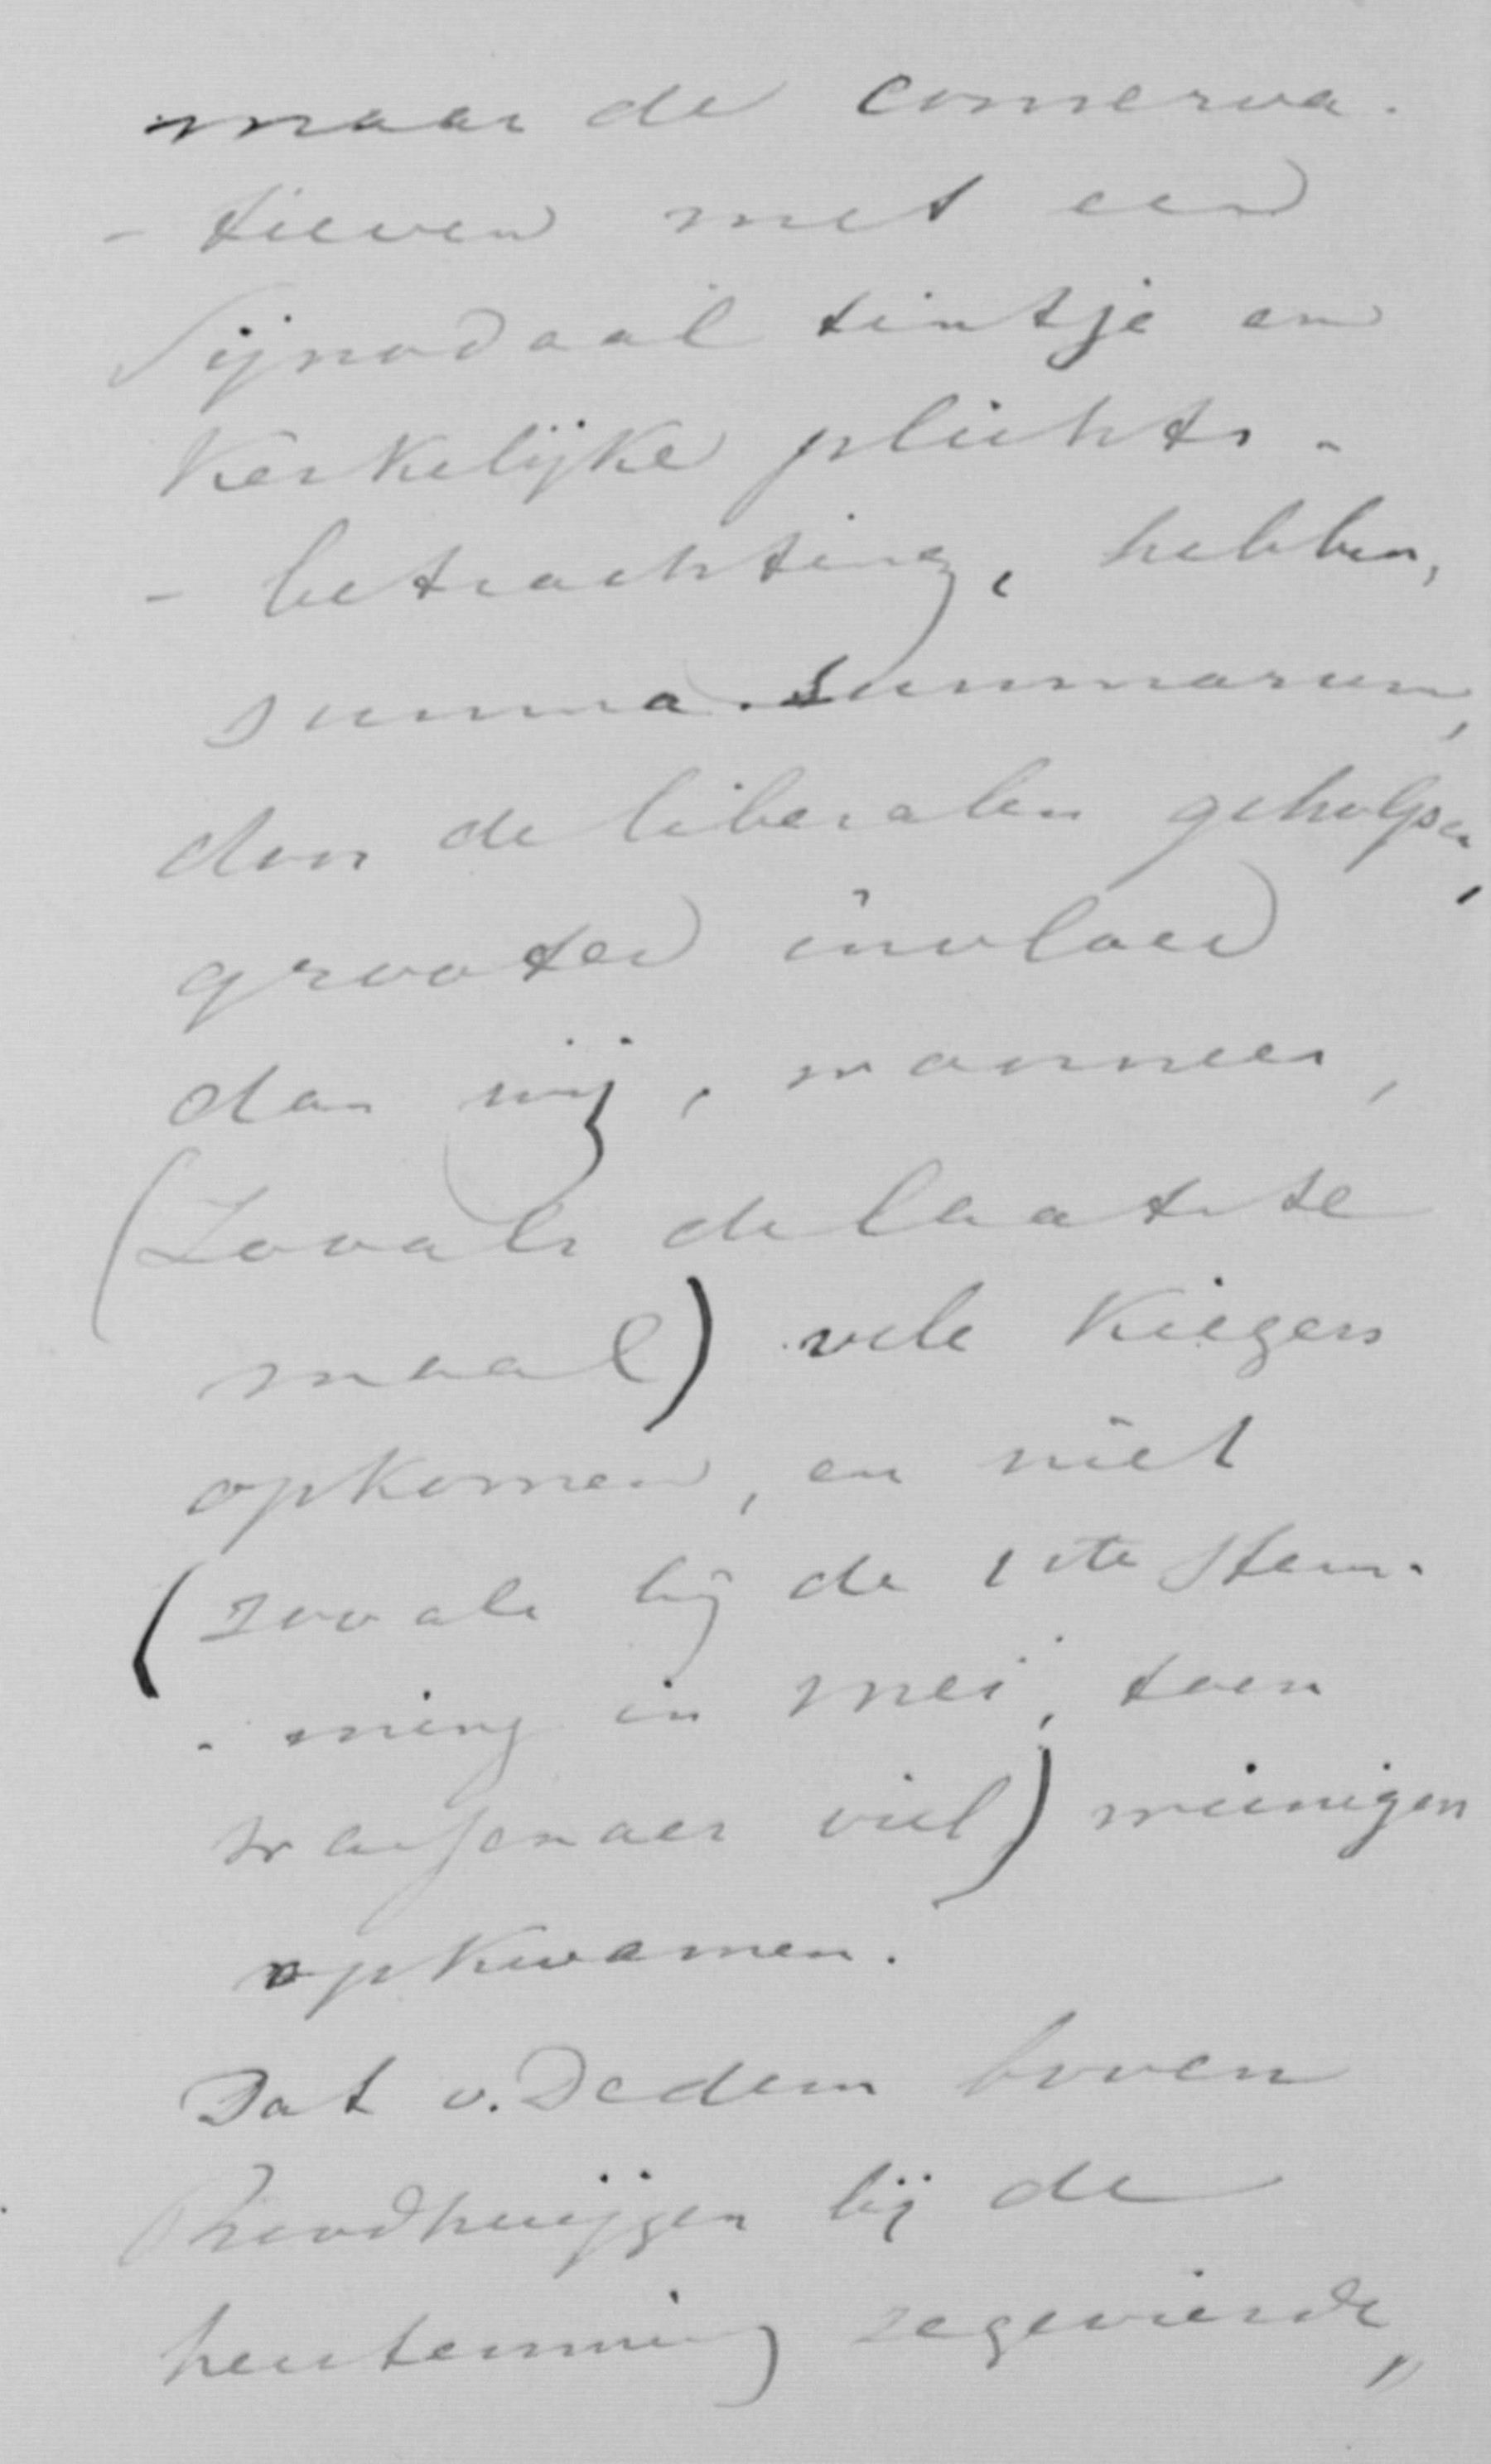 maar de conserva-
- tieven met een
Sijnodaal tintje en
Kerkelijke plichts -
- betrachting, hebben,
summa. summarum,
door de liberalen geholpen,
grooter invloed
dan wij, wanneer,
(Zooals de laatste
maal) vele Kiezers
opkomen, en niet
(zooals bij de 1ste stem-
- ming in mei, toen
Wassenaer viel) weinigen
opkwamen.
Dat v. Dedem boven
Roodhuijzen bij de
herstemming zegevierde,,